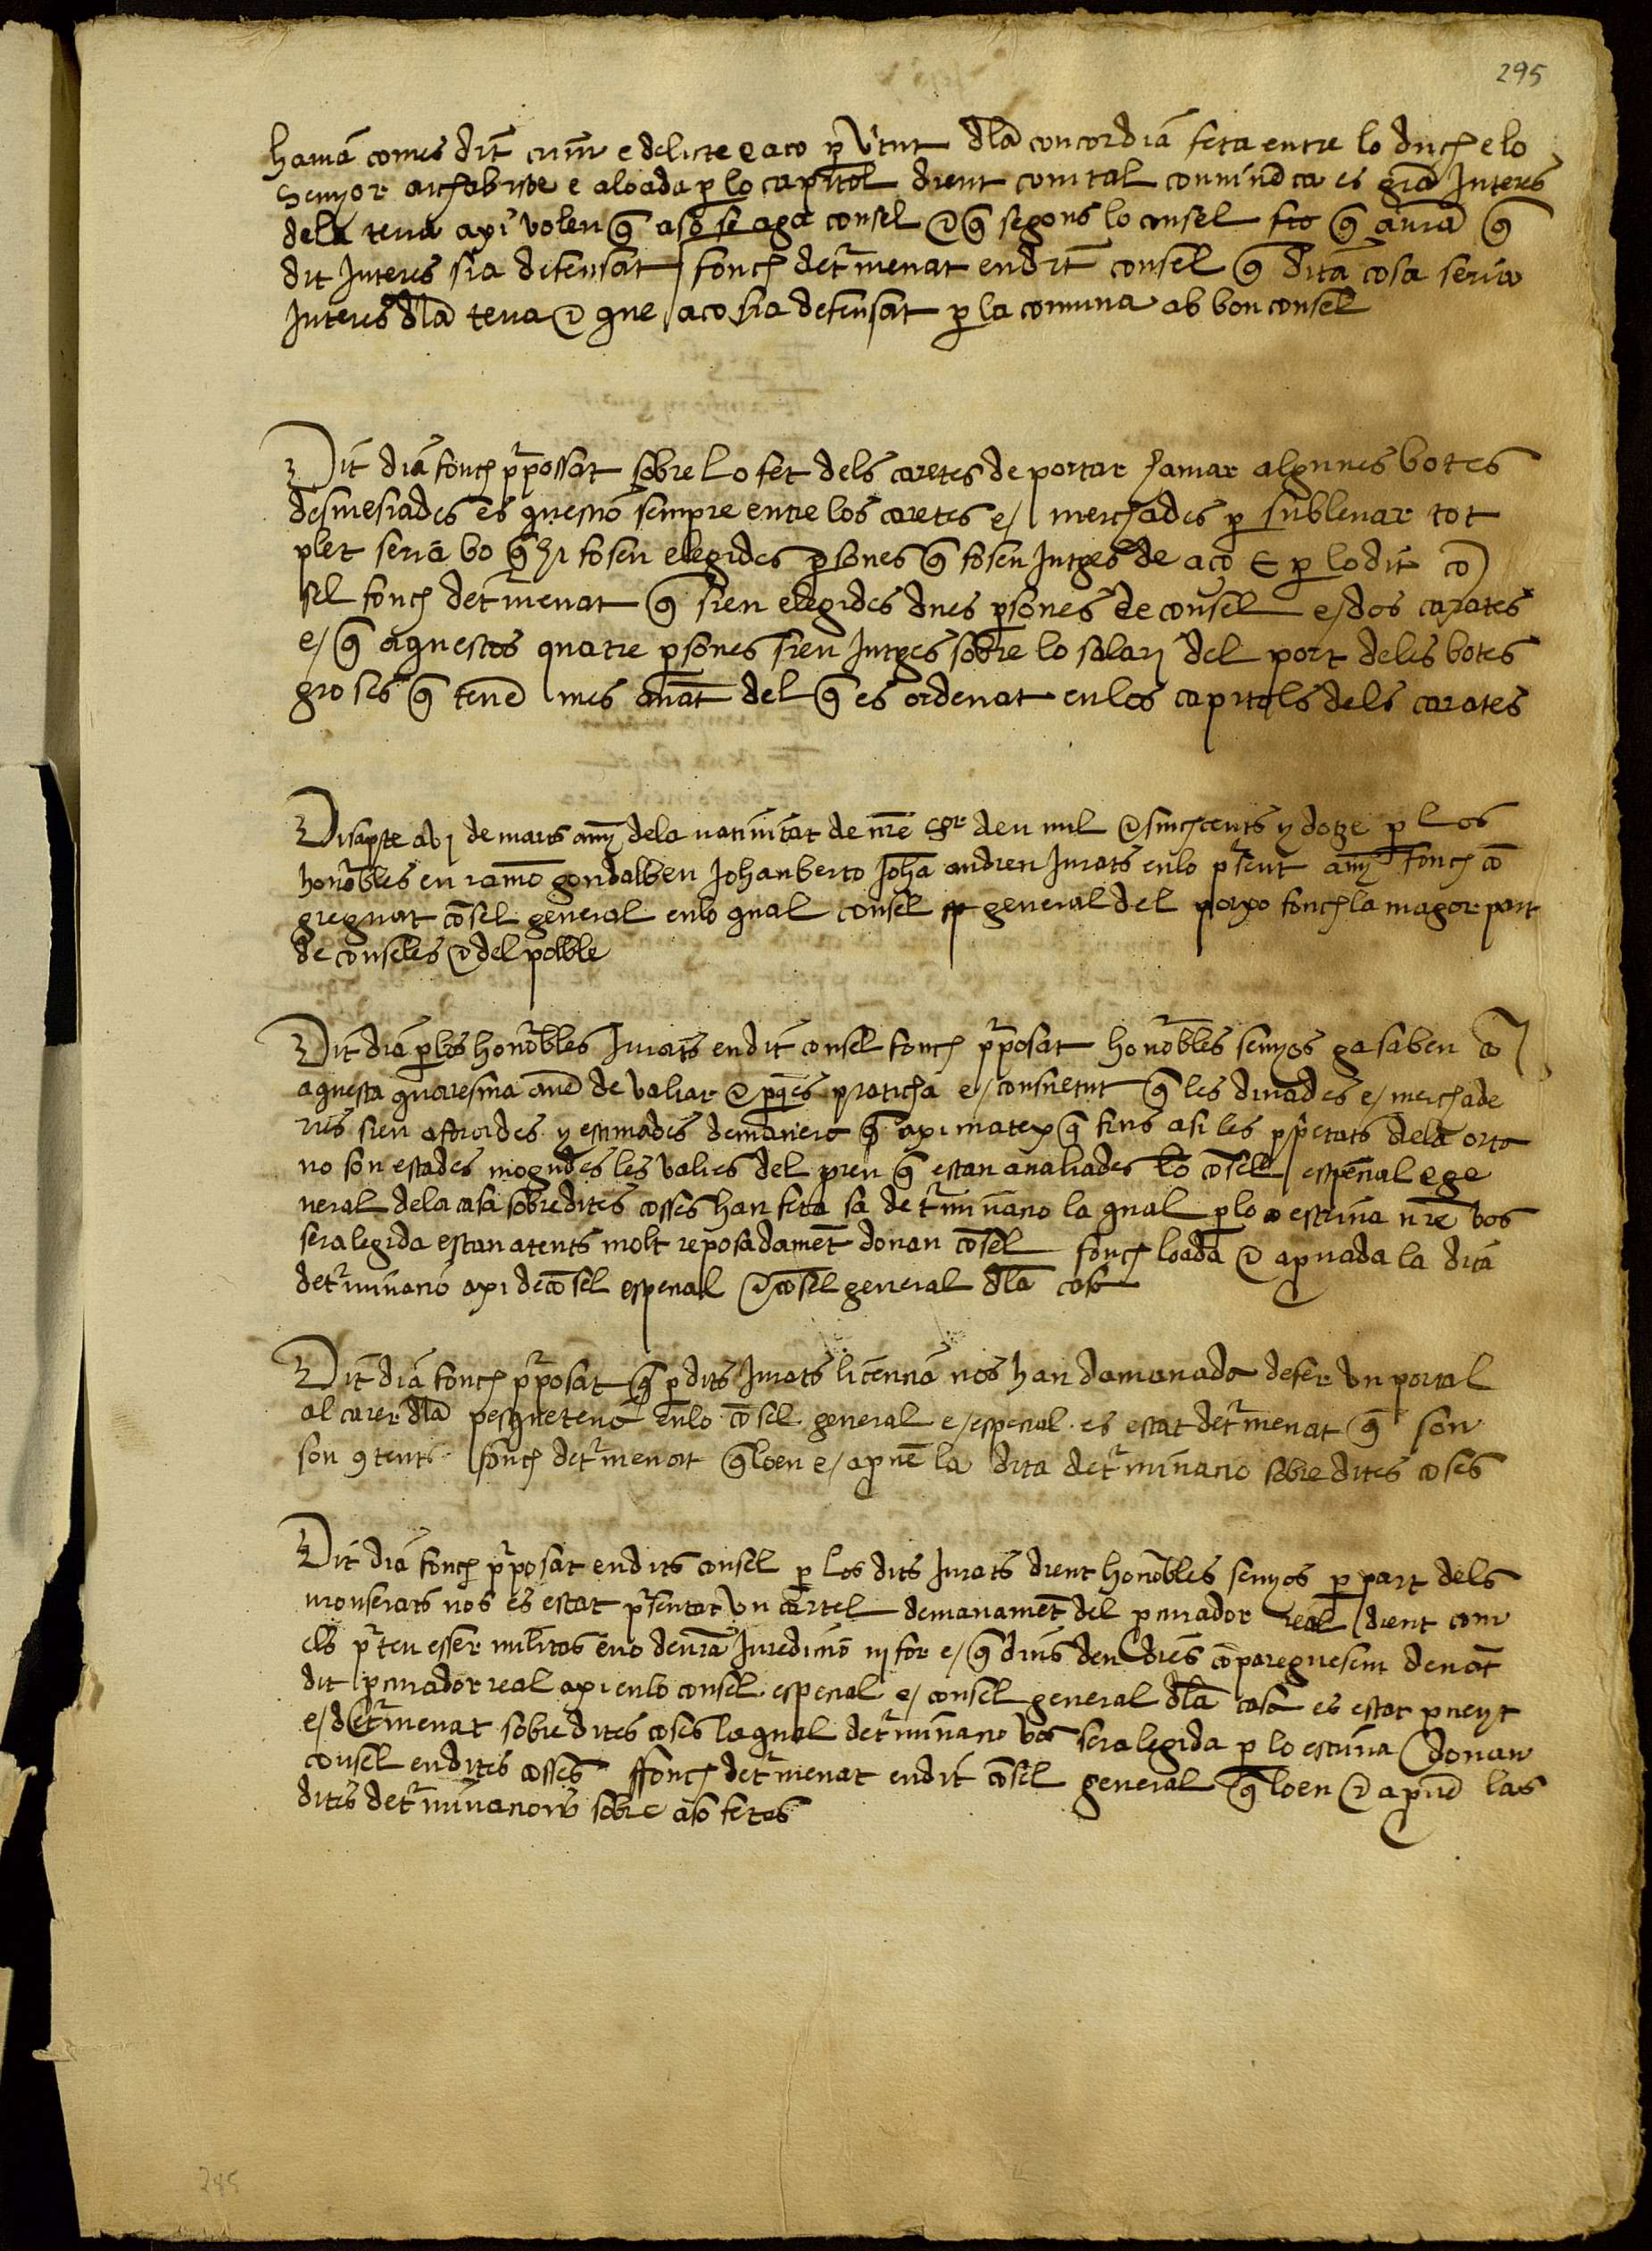 295
havia comes dit crim e delicte e aço per virtut dla concordia feta entre lo duch e lo
senyor archabisbe e aloada per lo capitol dient com tal convinēca es gran Interes
dela terra axi volen q̄ aso se aga consel & q̄ segons lo consel q̄ auria q̄
dit Interes sia defensat fonch det̄menat en dit consel q̄ dita cosa seria
Interes dla terra & que aco sia defensat per la comuna ab bon consel
Dit dia fonch p̄possat sobre lo fet dels caretes de portar algunes botes
desmesiades es questio sempre entre los caretes e/ merchades p sublevar tot
plet seria bo q̄ hi fosen elegides psones q̄ fosen Jutges de aco E p lo dit cō
sel fonch det̄menat q̄ sien elegides dues psones de consel e/ dos carates
e/ q̄ aquestos quatre psones sien Jutges sobre lo salari del port deles botes
groses q̄ tenē mes avāt del q̄ es ordenat en los capitols dels carates
Disapte a vj de mars any dela nativitat de nr̄e sgr deu mil & sinchcents y dotze p los
honorbles en ramō gondalbeu Johanberto Johā andreu Jurats en lo pr̄sent any fonch cō
gregnat cōsel general en lo qual consel general del porxo fonch la magor part
de conseles & del polble
Dit dia p los honorbles Jurats en dit consel fonch p̄posat honorbles senyos ga saben cō
aquesta quaresma avē de valiar & pq̄ es praticha e/ consuetut q̄ les divades e/ merchade
ries sien aforades y estimades demaneio q̄ axi matex q̄ fins asi les pp̄etats dela orta
no son estades mogudes les valies del preu q̄ estan avaliades lo cōsell espesial e ge
neral dela casa sobredites cosses han feta sa det̄minacio la qual p lo escriva nr̄e vos
sera legida estan atents molt reposadamēt donan cōsel fonch loada & apvada la dita
det̄minacio axi de cōsel espesial & cōsel general dla casa
Dit dia fonch p̄posat q̄ p dits Jurats licencia nos han damanada defer un portal
al carer dla pesqueteria en lo cōsel general e/ especial es estat det̄menat q̄ son
son 9tents fonch det̄menat q̄ loen e/ apvē la dita det̄minacio sobre dites coses
Dit dia fonch p̄posat en dits consel p los dits Jurats dient honorbles senyos p part dels
monserats nos es estat pr̄sentat un cartel demanamēt del pcurador real dient com
els pr̄ten esser militas e no de nr̄a Juredicio ni for e/ q̄ dins deu dies cōpareguesem denāt
dit pcurador real axi en lo consel especial e/ consel general dla casa es estat pveyt
e/ det̄menat sobre dites coses la qual det̄minacio vos sera legida p lo escriva donau
consel en dites cosses ffonch det̄menat en dit cōsel general q̄ loen & apvē las
dites det̄minacions sobre aso fetes
295